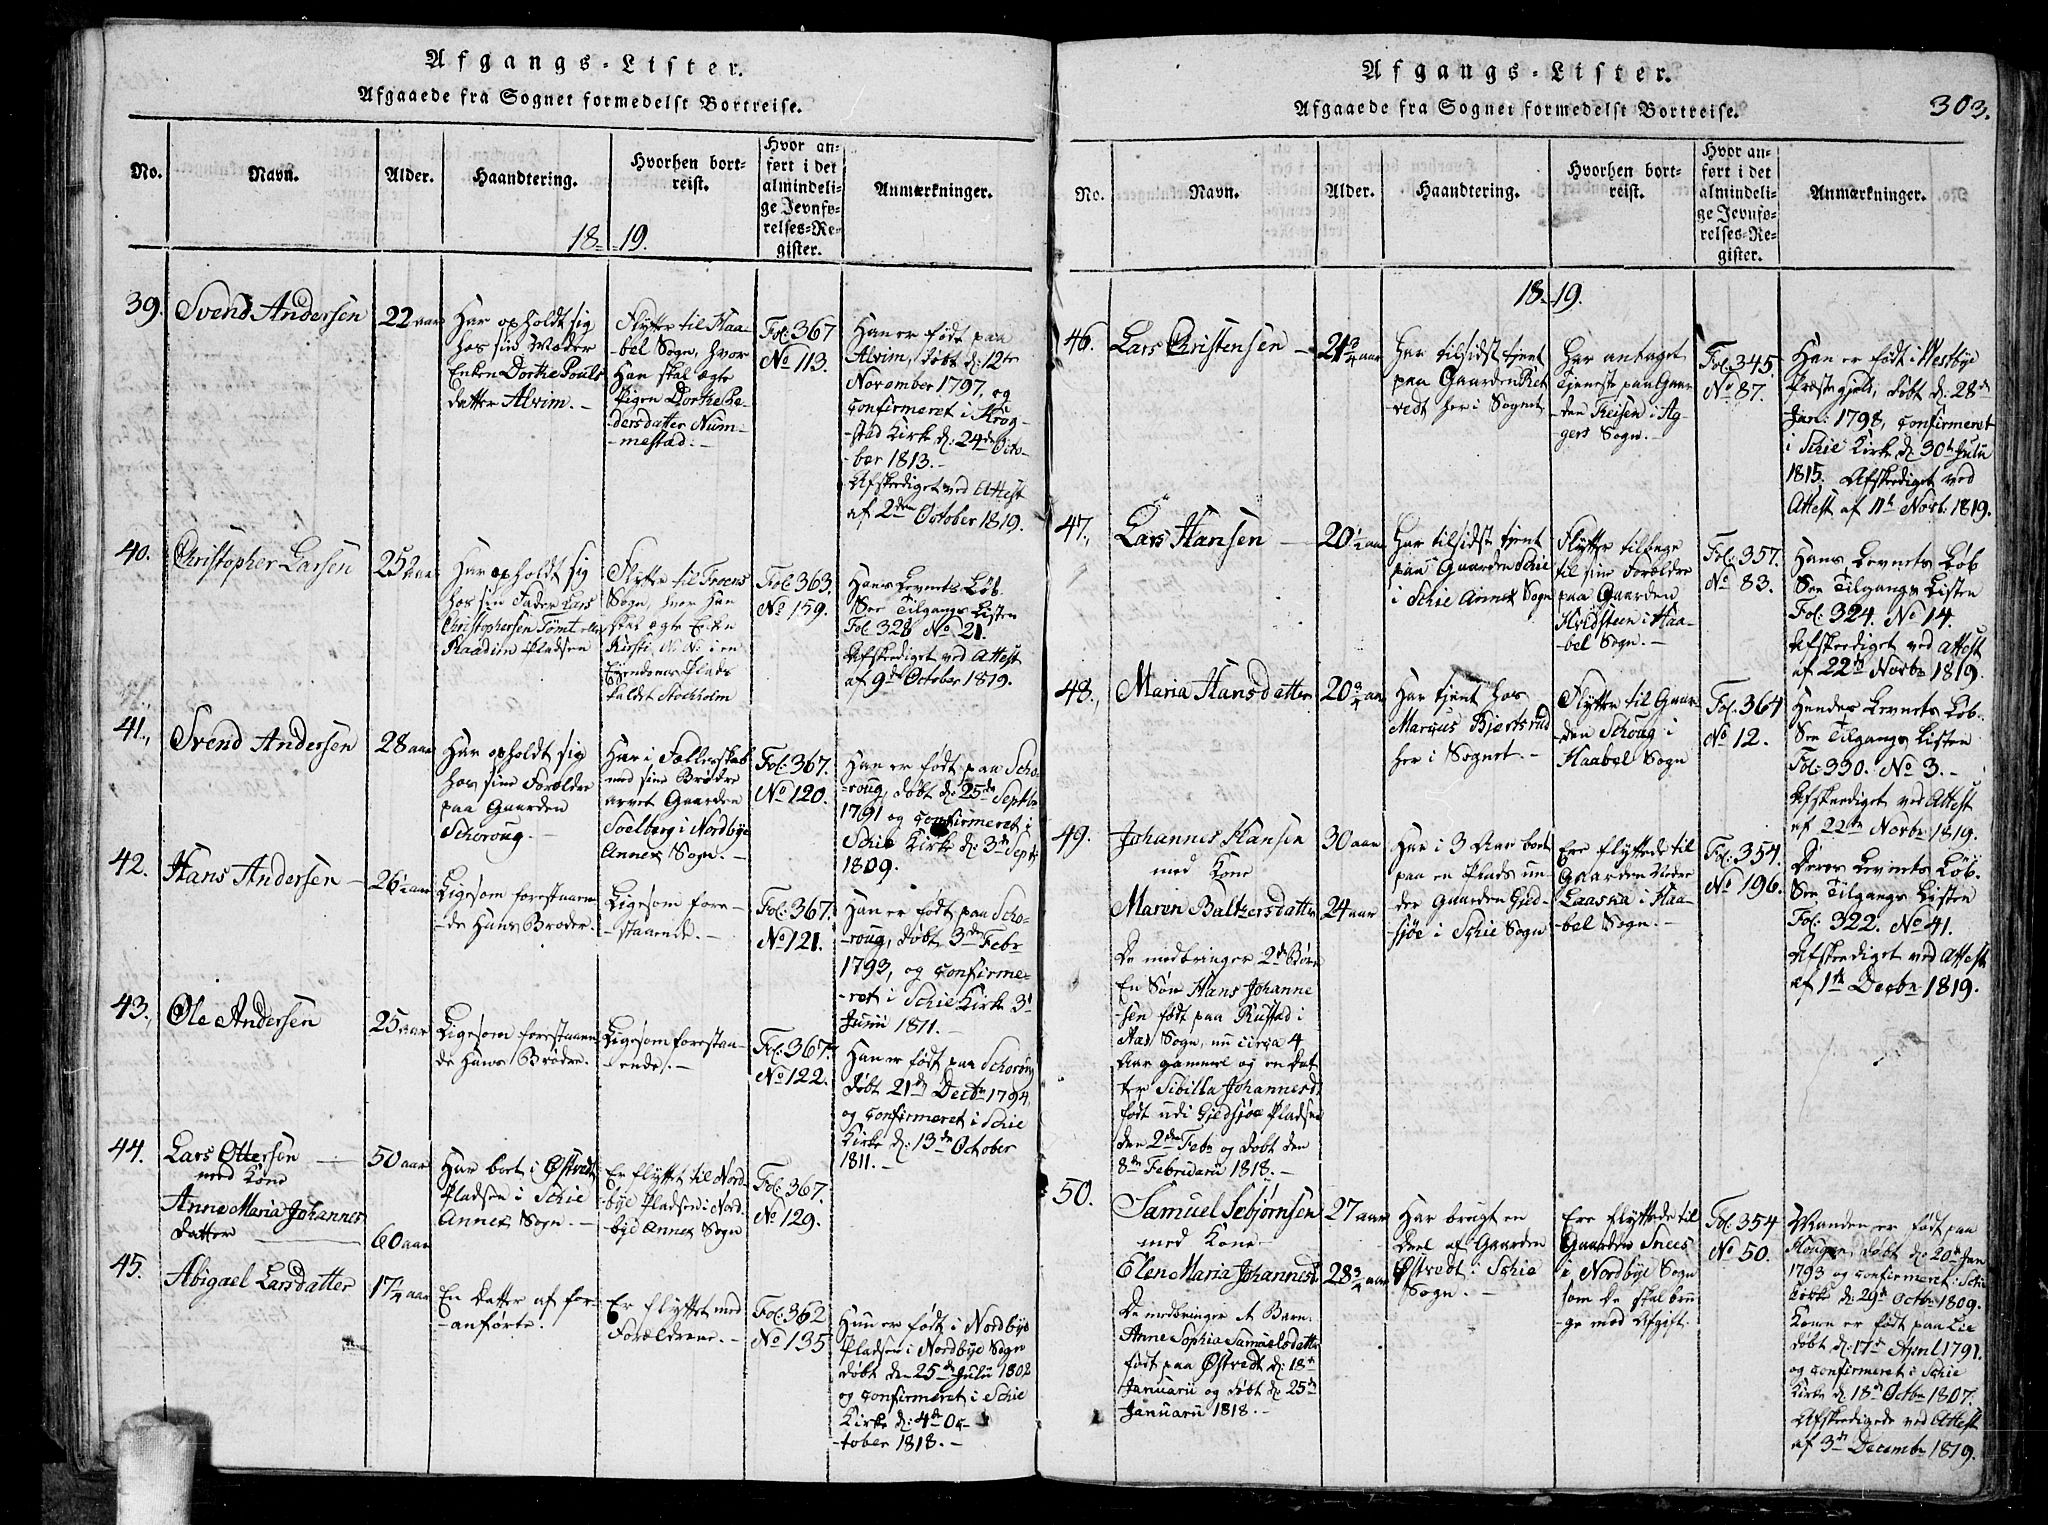 Afgangs-Lister.
Afgaaede fra Sognet formedelst Bortreise.
No.
Navn.
Alder.
Haandtering.
Hvorhen bort-
reist.
Hvor an-
ført i det
almindeli-
ge Jevnfø-
relses-Re-
gister.
Anmærkninger.
18 19.
39.
Svend Andersen
22 aar
Har opholdt sig
hos sin Moder
Enken Dorthe Pouls
datter Alvim.-
Flytter til Haa-
bøl Sogn, hvor
Han skal ægte
Pigen Dorthe Pe-
dersdatter Num-
mestad.-
Fol: 367
No 113.
Han er født paa
Alvim, døbt d: 12te
November 1797, og
confirmeret i Krog-
stad Kirke d: 24de Octo-
ber 1813.-
Afskediget ved Attest
af 2den October 1819.
40.
Christopher Larsen
25 1/2 aar
Har opholdt sig
hos sin Fader Lars
Christophersen Tømt eller
Raadim Pladsen
Flytter til Froens
Sogn, hvor Han
skal ægte Enken
Kirsti, N: N: i en
Eyendoms Plads
kaldt Stockholm
Fol: 363.
No 159.
Hans Levnets Løb.
See Tilgangs Listen
Fol: 328 No 21.
Afskediget ved Attest
af 9de October 1819.
41.
Svend Andersen
28 aar
Har opholdt sig
hos sine Forældre
paa Gaarden
Schoroug.-
Har i Fællesskab
med sine Brødre
arvet Gaarden
Soelberg i Nordbye
Annex Sogn.-
Fol: 367.
No 120.
Han er født paa Scho-
roug, døbt d: 25de Septbr
1791 og confirmeret i
Schie Kirke d: 3de Septb:
1809.
42.
Hans Andersen
26 1/2 aar
Ligesom forestaaen-
de Hans Broder.
Ligesom fore-
staaende.-
Fol: 367.
No 121.
Han er født paa Scho-
roug, døbt 3de Febr
1793, og confirme-
ret i Schie Kirke 3d
Junii 1811.-
43.
Ole Andersen
25 aar
Ligesom forestaaen-
de Hans Brødre.
Ligesom forestaa-
ende.-
Fol: 367.
No 122.
Han er født paa Schoroug
døbt 21de Decbr 1794,
og confirmeret i Schie
Kirke d: 13de October
1811.-
44.
Lars Ottersen
med Kone
Anne Maria Johannes
datter
50 aar
60 aar
Har boet i Østvedt
Pladsen i Schie
Annex Sogn.-
Er flyttet til Nord-
bye Pladsen i Nord-
bye Annex Sogn
Fol: 367.
No 129.
45.
Abigael Larsdatter
17 1/4 aar
En Datter af for-
anførte.
Er flyttet med
Forældrene.-
Fol: 362
No 135
Hun er født i Nordbye
Pladsen i Nordbye Sogn
døbt den 25de Julii 1802
og confirmeret i Schie
Kirke d: 4de Oc-
tober 1818.-
Afgangs-Lister.
303.
Afgaaede fra Sognet formedelst Bortreise.
No.
Navn.
Alder.
Haandtering.
Hvorhen bort-
reist.
Hvor an-
ført i det
almindeli-
ge Jevnfø-
relses-Re-
gister.
Anmærkninger.
18 19.
46.
Lars Christensen
21 3/4 aar
Har tilsidst tjent
paa Gaarden Ret
vedt her i Sognet.
Har antaget
Tjeneste paa Gaar-
den Treisen i Ag-
gers Sogn.-
Fol: 345.
No 87.
Han er født i Westbye
Præstegjeld, døbt d: 28de
Jan: 1798, confirmeret
i Schie Kirke d: 30te Julii
1815. Afskediget ved
Attest af 11te Novb: 1819.
47.
Lars Hansen
20 1/4 aar
Har tilsidst tjent
paa Gaarden Schie
i Schie Annex Sogn
Flytter tilbage
til sine Forældre
paa Gaarden
Hvidsteen i Haa-
bøl Sogn.-
Fol: 357.
No 83.
Hans Levnets Løb
See Tilgangs Listen
Fol: 324. No 14.
Afskediget ved Attest
af 22de Novbr 1819.
48.
Maria Hansdatter
20 3/4 aar
Har tjent hos
Marcus Bjertsrud
her i Sognet.-
Flytter til Gaar-
den Schoug i
Haabøl Sogn
Fol: 364
No 12.
Hendes Levnets Løb.
See Tilgangs Listen
Fol: 330. No 3.-
Afskediget ved Attest
af 22de Novbr 1819.
49.
Johannes Hansen
med Kone
Maren Baltzersdatter
30 aar
24 aar
De medbringer 2de Børn
En Søn Hans Johanne
sen født paa Rustad i
Aas Sogn, nu circa 4
Aar gammel og en Dat
ter Sibilla Johannesd:
født udi Gjedsjøe Pladsen
den 2den Febr og døbt den
8de Februarii 1818.-
Har i 3 Aar boet
paa en Plads un-
der Gaarden Gjed-
sjøe i Schie Sogn
Ere flyttede til
Gaarden Nedre
Laaska i Haa-
bøl Sogn.-
Fol: 354.
No 196.
Deres Levnets Løb.
See Tilgangs Listen
Fol: 322. No 41.
Afskediget ved Attest
af 1te Decbr 1819.
50.
Samuel Sebjørnsen
med Kone
Elen Maria Johannesd:
27 aar
28 3/4 aar
De medbringer et Barn
Anne Sophia Samuelsdatter
født paa Østvedt d: 18de
Januarii og døbt d: 25de
Januarii 1818.-
Har brugt en
Deel af Gaarden
Østvedt i Schie
Sogn.-
Ere flyttede til
Gaarden Snees
i Nordbye Sogn
som De skal bru
ge mod Afgift.
Fol: 354
No 50.
Manden er født paa
Hougen, døbt d: 20de Jan
1793 og confirmeret i Schie
Kirke d: 29de Octbr 1809.
Konen er født paa Lie
døbt d: 17de April 1791.
og confirmeret i Schie
Kirke d: 18de Octbr 1807.
Afskedigede ved Attest
af 3de Decembr 1819.